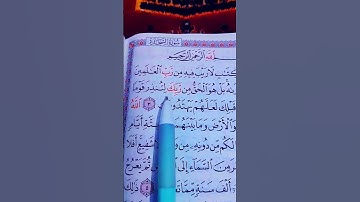 سُورَةُ السَّجْدَةِ
ٱللَّهِ ٱلرَّحْمَٰنِ ٱلرَّحِيمِ
ٱلْكِتَٰبِ لَا رَيْبَ فِيهِ مِن رَّبِّ ٱلْعَٰلَمِينَ
بَلْ هُوَ ٱلْحَقُّ مِن رَّبِّكَ لِتُنذِرَ قَوْمًا
قَبْلِكَ لَعَلَّهُمْ يَهْتَدُونَ ٣ ٱللَّهُ
وَٱلْأَرْضَ وَمَا بَيْنَهُمَا سِتَّةِ أَيَّامٍ
لَكُم مِّن دُونِهِۦ مِن شَفِيعٍ أَفَلَا
مِنَ ٱلسَّمَآءِ إِلَى ثُمَّ يَعْرُجُ
أَلْفَ سَنَةٍ مِّمَّا ٥ ذَٰلِكَ